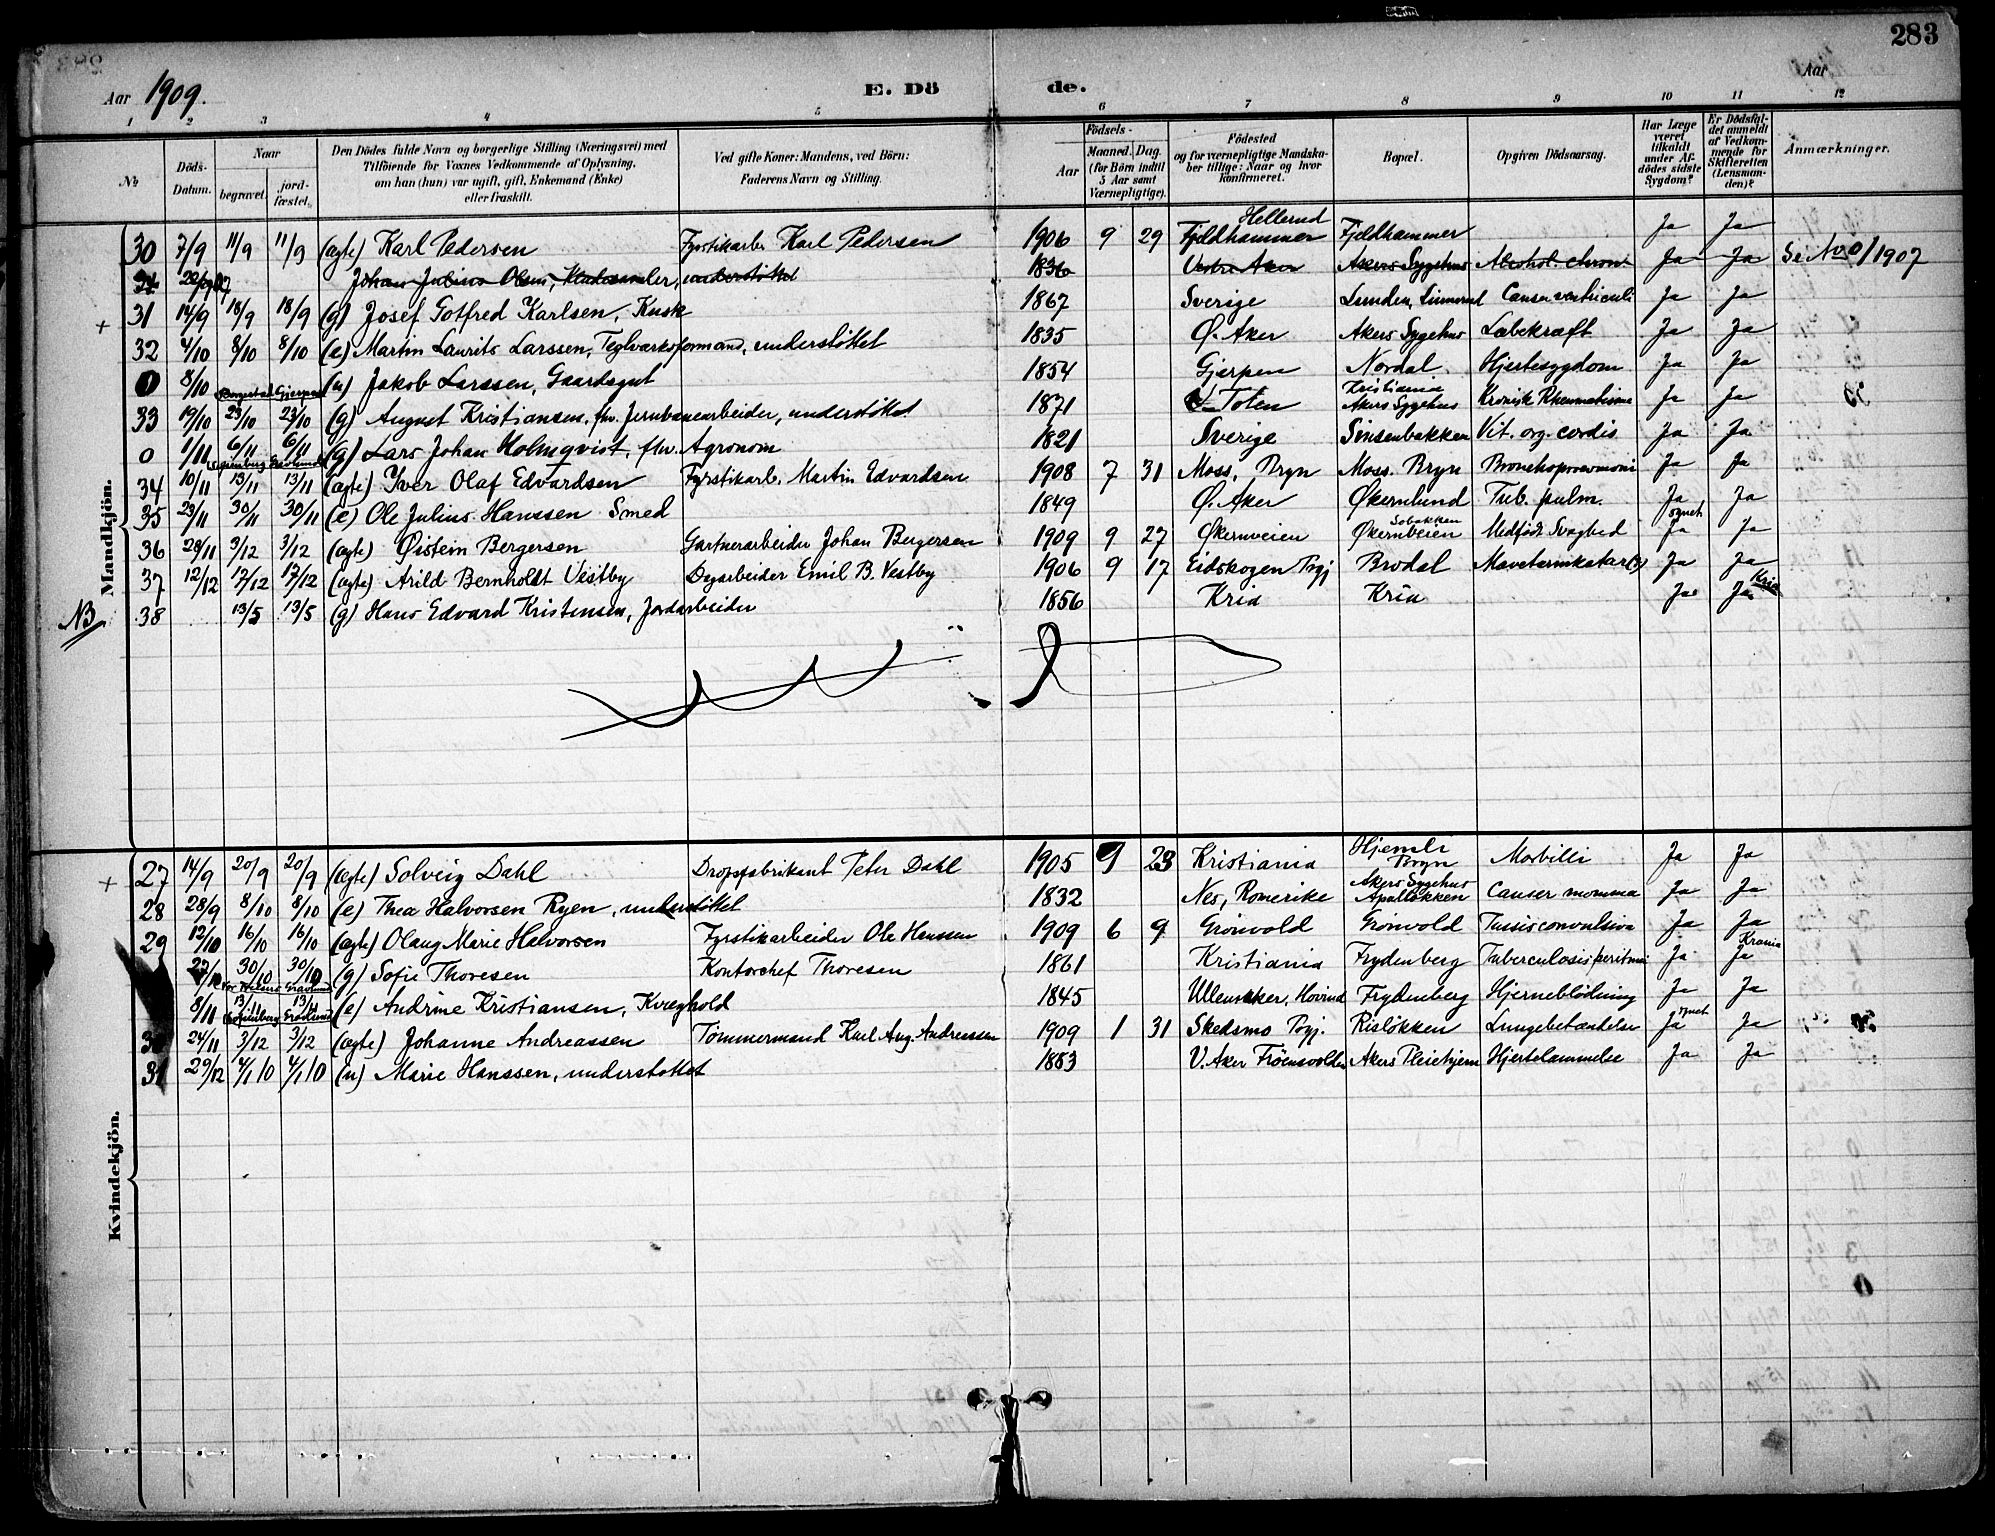 283
Aar 1909.
E. Dö de.
Aar
1 2 3 4 5 6 7 8 9 10 11 12
№
Döds-Datum.
Naar
begravet.
jord-fæstet.
Den Dödes fulde Navn og borgerlige Stilling (Næringsvei) med
Tilföiende for Voxnes Vedkommende af Oplysning,
om han (hun) var ugift, gift, Enkemand (Enke)
eller fraskilt.
Ved gifte Koner: Mandens, ved Börn:
Faderens Navn og Stilling.
Födsels-
Aar
Maaned. Dag.
(for Börn indtil
5 Aar samt
Værnepligtige).
Födested
og for værnepligtige Mandska-
ber tillige: Naar og hvor
konfirmeret.
Bopæl.
Opgiven Dödsaarsag.
Har Læge
været
tilkaldt
under Af-
dödes sidste
Sygdom?
Er Dödsfal-
det anmeldt
af Vedkom-
mende for
Skifteretten
(Lensman-
den)?
Anmærkninger.
Mandkjön.
30 7/9 11/9 11/9 (ægte) Karl Pedersen Fyrstikarb. Karl Pedersen 1906 9 29 Hellerud Fjeldhammer Fjeldhammer Ja Ja
Johan Julius Olsen, Kludesamler, understöttet 1836 Vestre Aker Akers Sygehus Alcohol. chron. Ja Ja Se No 0/1907
+ 31 14/9 18/9 18/9 (g) Josef Gotfred Karlsen, Kusk 1867 Sverige Lunden, Cancer ventriculi Ja Ja
32 4/10 8/10 8/10 (e) Martin Laurits Larssen, Teglverksformand, understöttet 1835 Ø. Aker Akers Sygehus Læbekræft Ja Ja
0 8/10 Borgestad Gjerpen (u) Jakob Larssen, Gaardsgut 1854 Gjerpen Nordal Hjertesygdom Ja Ja
33 19/10 23/10 23/10 (g) August Kristiansen, fhv. Jernbanearbeider, understöttet 1871 V. Toten Kristiania Akers Sygehus Kronisk Rheumatisme Ja Ja
0 1/11 6/11 6/11 (g) Lars Johan Holmqvist, fhv. Agronom 1821 Sverige Sinsenbakken Vit. org. cordis Ja Ja
34 10/11 13/11 13/11 (ægte) Iver Olaf Edvardsen Fyrstikarb. Martin Edvardsen 1908 7 31 Moss, Bryn Moss. Bryn Bronchopneumoni Ja Ja
35 23/11 30/11 30/11 (e) Ole Julius Hanssen Smed 1849 Ø. Aker Økernlund Tub. pulm. Ja Ja
36 28/11 3/12 3/12 (ægte) Øistein Bergersen Gartnerarbeider Johan Bergersen 1909 9 27 Økernveien Økernveien Medfödt Svaghed Ja Ja
37 12/12 17/12 17/12 (ægte) Arild Bernholdt Vestby Dagarbeider Emil B. Vestby 1906 9 17 Eidskogen Prgj Brodal Mavetarmkatar(?) Ja Ja
NB 38 13/5 13/5 (g) Hans Edvard Kristensen, Jordarbeider 1856 Kria Kria Ja Ja Kria
Kvindekjön.
+ 27 14/9 20/9 20/9 (ægte) Solveig Dahl Dropsfabrikant Peter Dahl 1905 9 23 Kristiania Hjemli Bryn Morbilli Ja Ja
28 28/9 8/10 8/10 (e) Thea Halvorsen Ryen, understöttet 1832 Nes, Romerike Akers Sygehus Apalløkken Cancer mamma Ja Ja
29 12/10 16/10 16/10 (ægte) Olaug Marie Halvorsen Fyrstikarbeider Ole Hanssen 1909 6 9 Grönvold Grönvold Tussis convulsiva Ja Ja
30/10 30/10 (g) Sofie Thoresen Kontorchef Thoresen 1861 Kristiania Frydenberg Tuberculosis peritonei Ja Ja Krania
Vor Frelsers Gravlund
8/11 13/11 13/11 (e) Andrine Kristiansen, Kvæghold 1845 Ullensaker, Hovind Frydenberg Hjerneblödning Ja Ja
Sofienberg Gravlund
30 24/11 3/12 3/12 (ægte) Johanne Andreassen Tömmermand Karl Aug. Andreassen 1909 1 31 Skedsmo Prgj. Risløkken Lungebetændelse Ja Ja
31 29/12 4/1 10 4/1 10 (u) Marie Hanssen, understöttet 1883 V. Aker Akers Pleiehjem Hjertelammelse Ja Ja